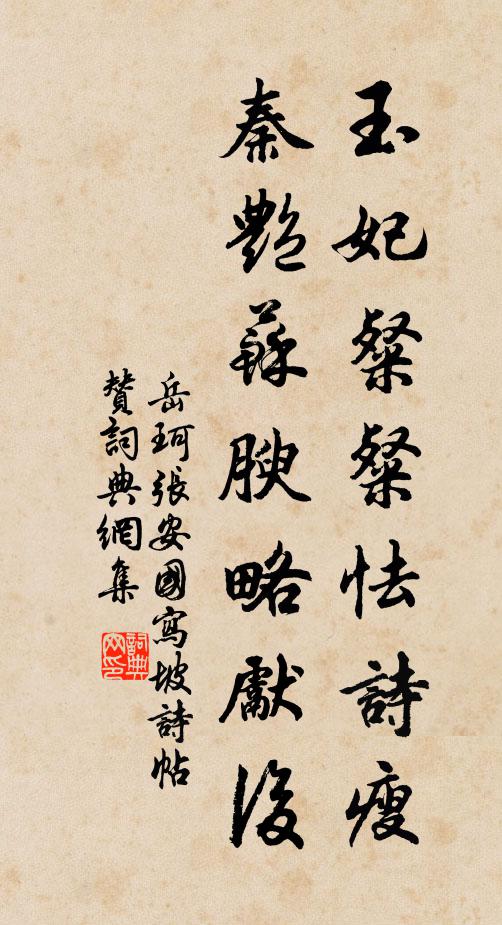 玉妃粲粲怯詩瘦
秦艷蘇腴略獻後
岳珂張安國寫坡詩帖
贊詞典網集
詞典網印